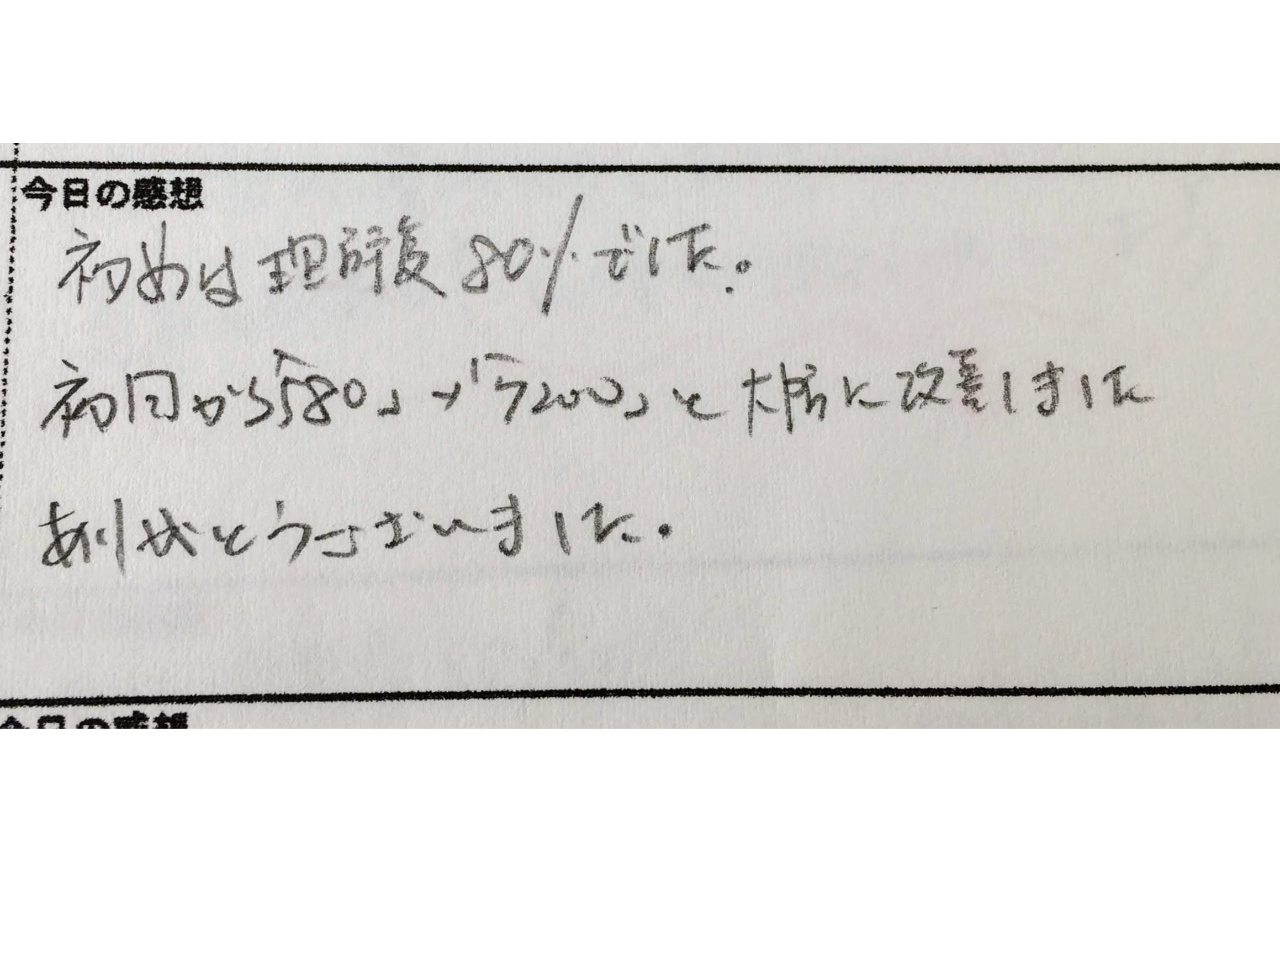 今日の感想
初めは理解度80%でした。
初回から「580」→「7200」と大幅に改善しました
ありがとうございました。
今日の感想